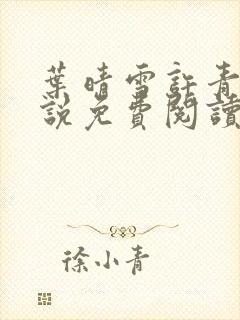 葉晴雪許青
說免費閱讀
徐小青